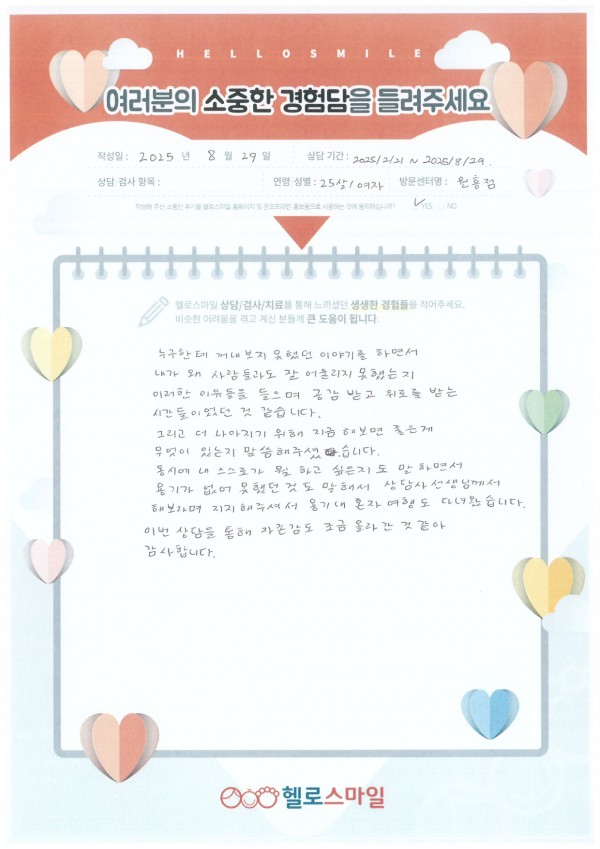 HELLOSMILE
여러분의 소중한 경험담을 들려주세요
작성일 : 2025 년 8 월 29 일 상담 기간 : 2025/2/21 ~ 2025/8/29.
상담 검사 항목 : 연령 성별 : 25살/여자 방문센터명 : 원흥점
작성해 주신 소중한 후기를 헬로스마일 홈페이지 및 온오프라인 홍보용으로 사용하는 것에 동의하십니까? ✓YES NO
헬로스마일 상담/검사/치료를 통해 느끼셨던 생생한 경험들을 적어주세요.
비슷한 어려움을 겪고 계신 분들께 큰 도움이 됩니다.
누구한테 꺼내보지 못했던 이야기를 하면서
내가 왜 사람들과도 잘 어울리지 못했는지
이러한 이유들을 들으며 공감 받고 위로를 받는
시간들이었던 것 같습니다.
그리고 더 나아지기 위해 지금 해보면 좋은게
무엇이 있는지 말씀해주셨습니다.
동시에 내 스스로가 뭘 하고 싶은지도 말하면서
용기가 없어 못했던 것도 말해서 상담사선생님께서
해보라며 지지해주셔서 용기내 혼자 여행도 다녀왔습니다.
이번 상담을 통해 자존감도 조금 올라간 것 같아
감사합니다.
헬로스마일